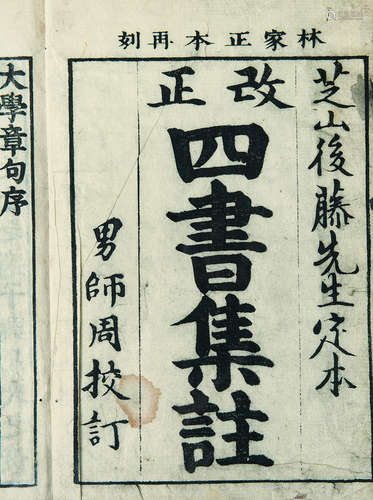 林家正本再刻
芝山後藤先生定本
改正
四書集註
男師周挍訂
大學章句序